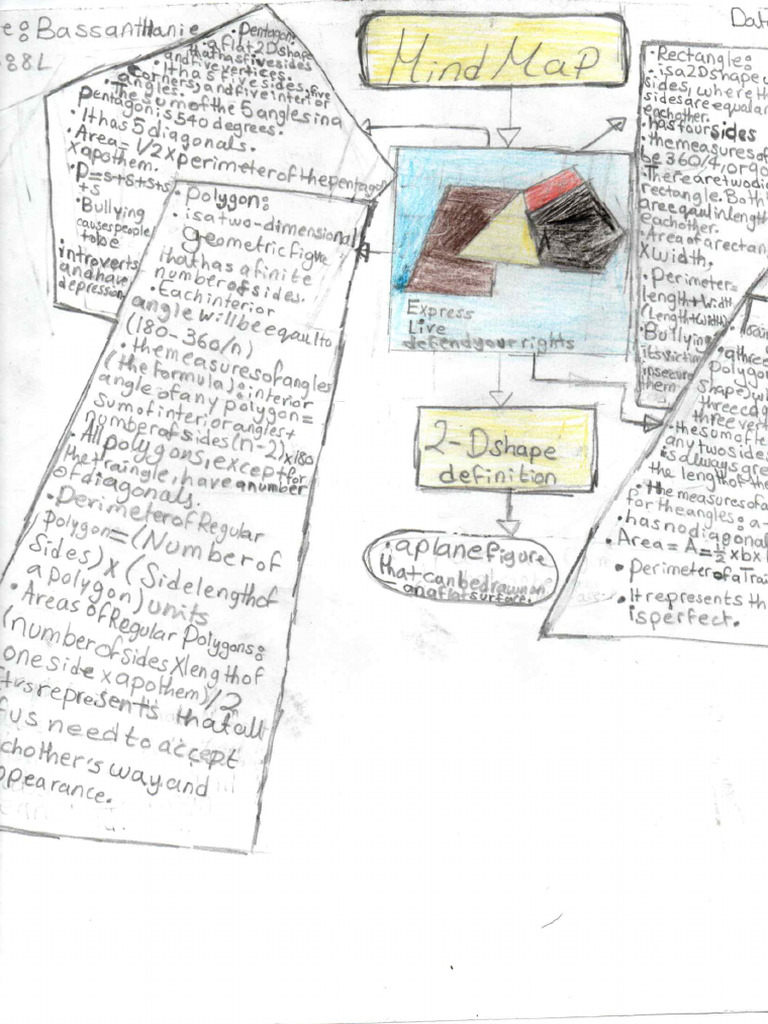 e: Bassant Hanie
Date
88L
Mind Map
• Pentagon:
• a flat 2D shape
that has five sides
and five vertices.
• It has five sides, five
corners, and five interior
angles.
• The sum of the 5 angles in a
pentagon is 540 degrees.
• It has 5 diagonals.
• Area = 1/2 x perimeter of the pentagon
x apothem.
• P=s+s+s+s
+s
• Bullying
causes people
to be
introverts
and have
depression
• Polygon:
• is a two-dimensional
geometric figure
that has a finite
number of sides.
• Each interior
angle will be equal to
(180-360/n)
• the measures of angles
(the formula): interior
angle of any polygon=
sum of interior angles ÷
number of sides (n-2) x 180
• All polygons, except for
the traingle, have a number
of diagonals.
• Perimeter of Regular
Polygon = (Number of
Sides) X (Side length of
a polygon) units
• Areas of Regular Polygons:
(number of sides X length of
one side x apothem)/2
represents that all
us need to accept
other's way and
pearance.
Express
Live
defend your rights
2-D shape
definition
• a plane figure
that can be drawn on
on a flat surface.
• Rectangle:
• is a 2D shape
sides, where th
sides are equal an
each other.
• has four sides
• the measures of
be 360/4, or 90
• There are two di
rectangle. Both
are eqaul in length
each other.
• Area of a rectan
X width,
• Perimeter=
length + width
(Length + width)
• Bullying
its victim
insecure
them
• a three
polygon
shape, w
three edg
three vert
• the sum of le
any two sides
is always gre
the length of the
• the measures of a
for the angles: a
• has no diagonal
• Area = A = ½ x b x
• perimeter of a Trai
• It represents th
is perfect.